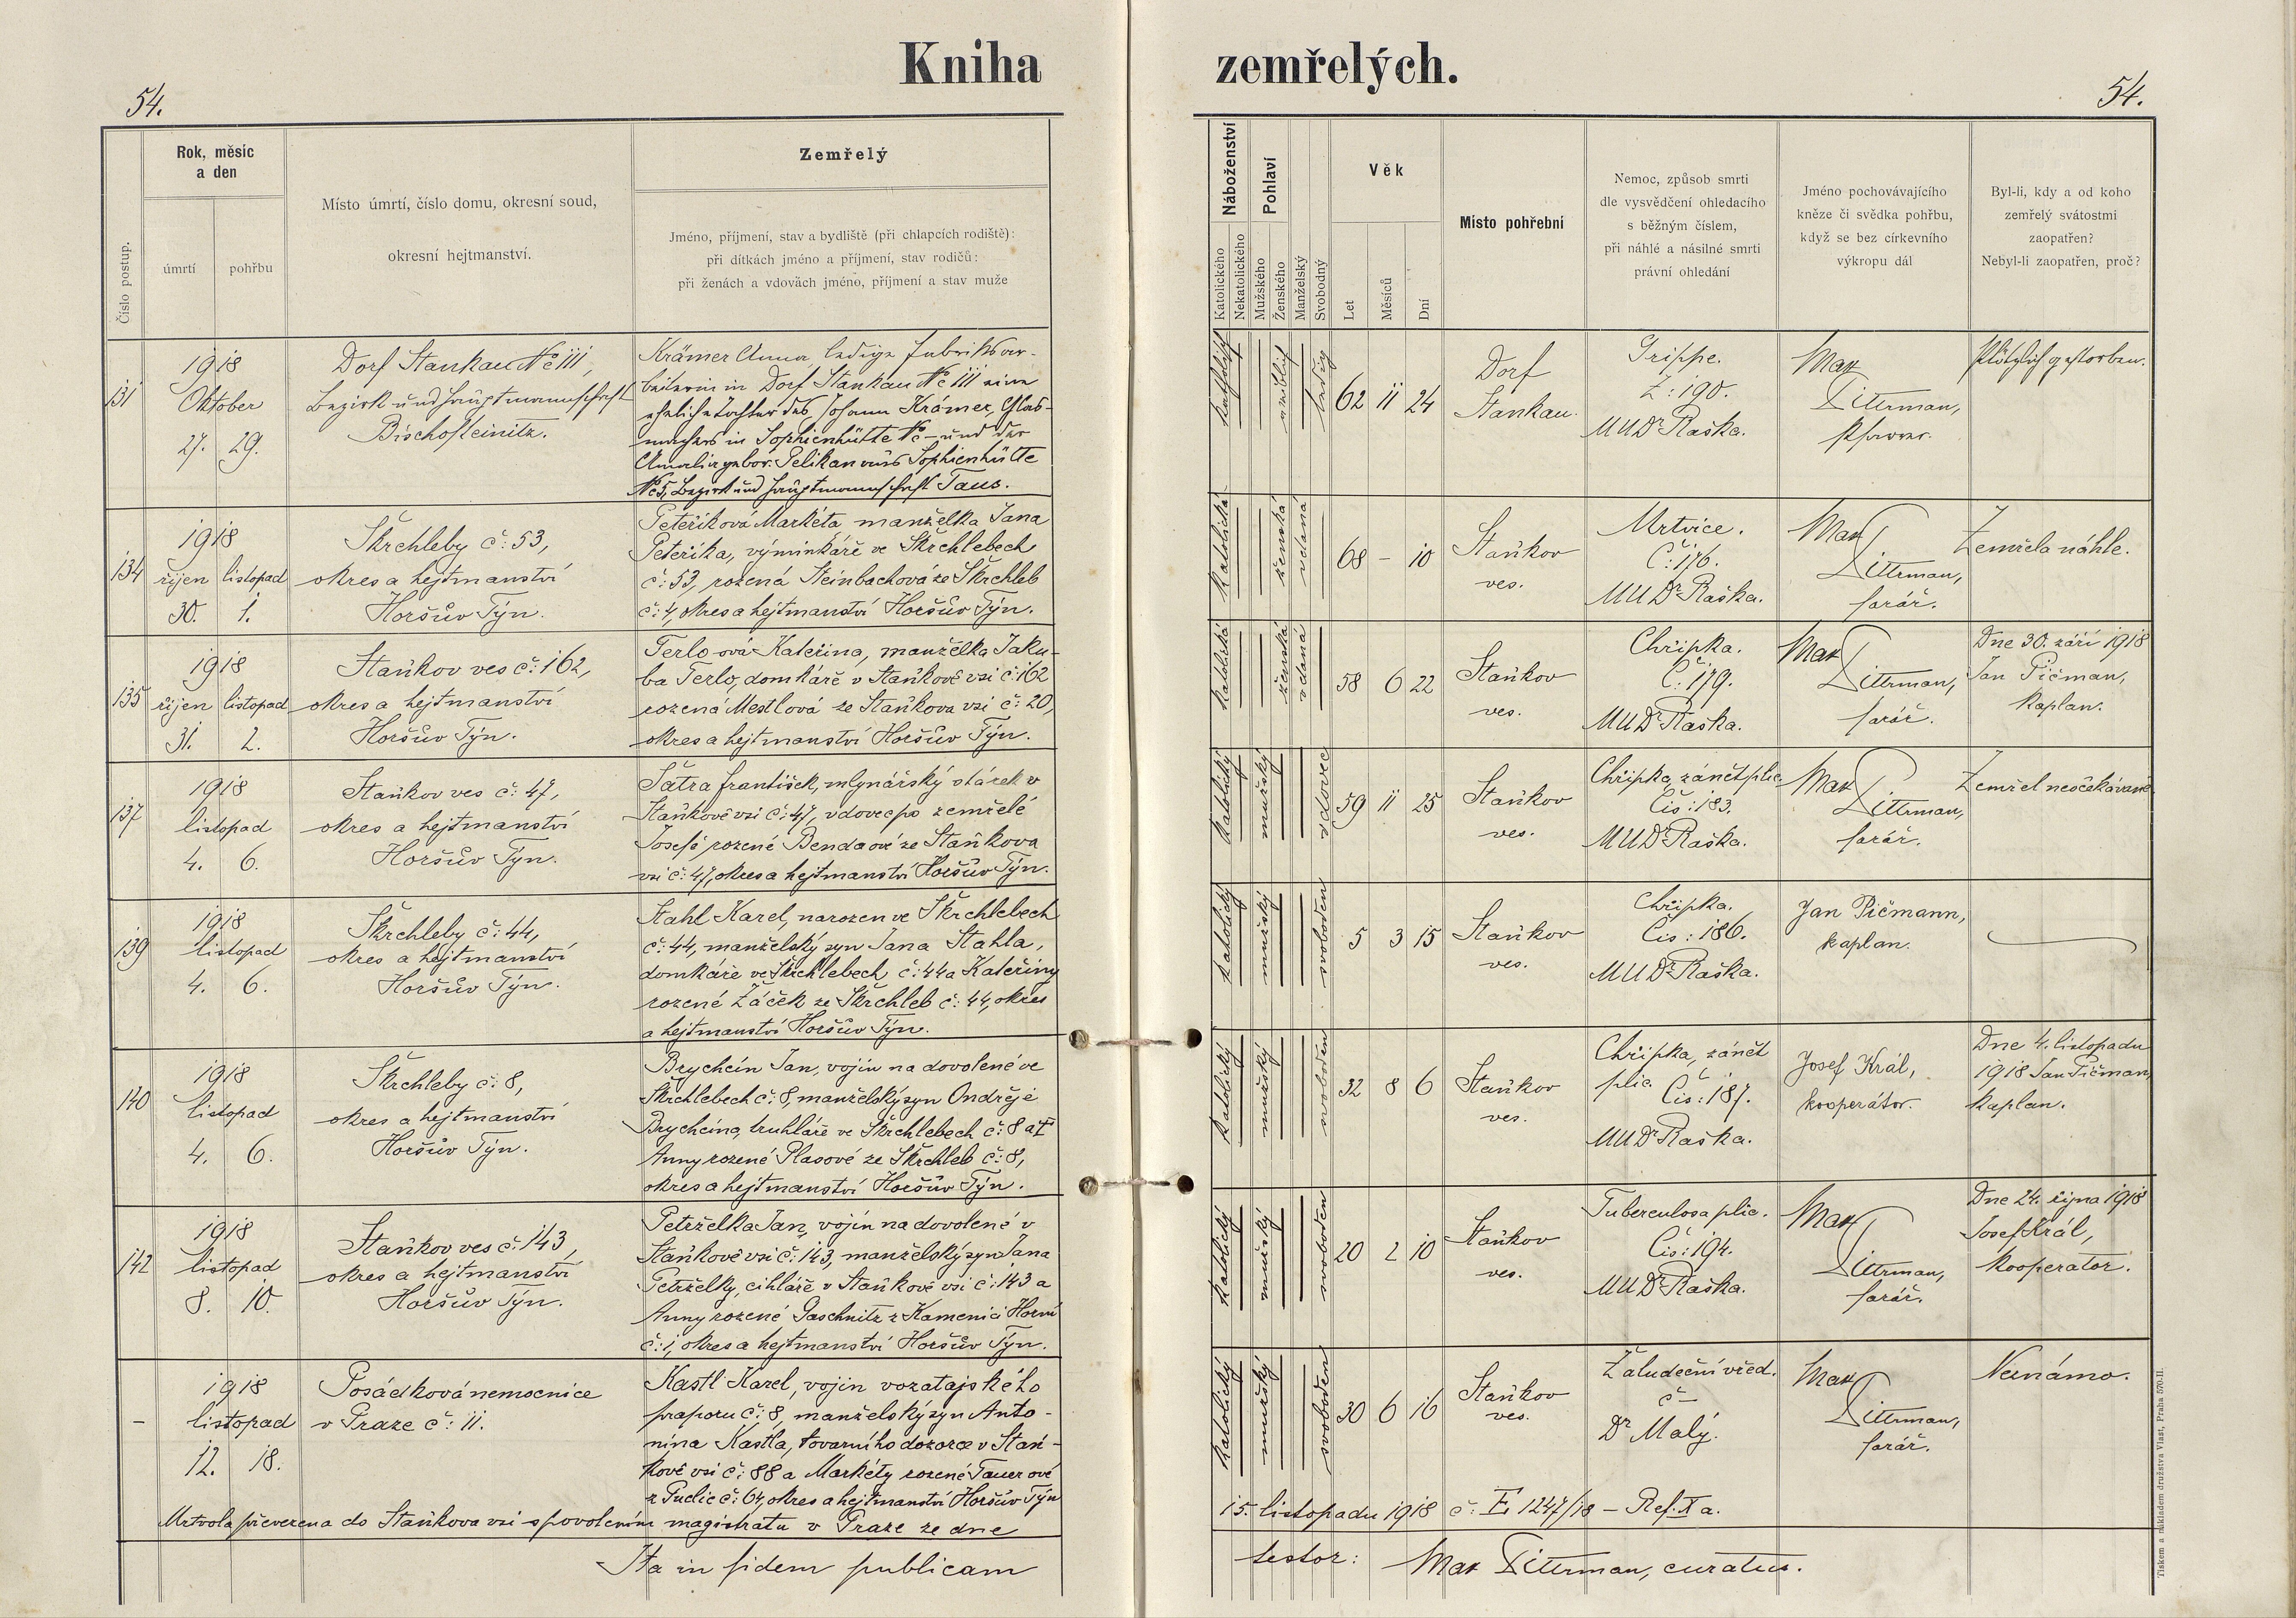 Kniha zemřelých.
54.
54.
Číslo postup.
Rok, měsíc
a den
úmrtí
pohřbu
Místo úmrtí, číslo domu, okresní soud,
okresní hejtmanství.
Zemřelý
Jméno, příjmení, stav a bydliště (při chlapcích rodiště):
při dítkách jméno a příjmení, stav rodičů:
při ženách a vdovách jméno, příjmení a stav muže
Náboženství
Katolického
Nekatolického
Pohlaví
Mužského
Ženského
Manželský
Svobodný
Věk
Let
Měsíců
Dní
Místo pohřební
Nemoc, způsob smrti
dle vysvědčení ohledacího
s běžným číslem,
při náhlé a násilné smrti
právní ohledání
Jméno pochovávajícího
kněze či svědka pohřbu,
když se bez církevního
výkropu dál
Byl-li, kdy a od koho
zemřelý svátostmi
zaopatřen?
Nebyl-li zaopatřen, proč?
131
1918
Oktober
27. 29.
Dorf Stankau No 111,
Bezirk und Hauptmannschaft
Bischofteinitz.
Krämer Anna, ledige Fabriksar-
beiterin in Dorf Stankau No 111 eine
eheliche Tochter des Johann Krämer, Glas-
machers in Sophienhütte No - und der
Amalie gebor. Pelikan aus Sophienhütte
No 5, Bezirk und Hauptmannschaft Taus.
katholisch
weiblich
ledig
62 11 24
Dorf
Stankau.
Grippe.
Z: 190.
MUDr Raška.
Max
Dittrman,
Pfarrer.
Plötzlich gestorben.
134
1918
říjen listopad
30. 1.
Škrchleby č: 53,
okres a hejtmanství
Horšův Týn.
Peteříková Markéta, manželka Jana
Peteříka, výminkáře ve Škrchlebech
č: 53, rozená Steinbachová ze Škrchleb
č: 4, okres a hejtmanství Horšův Týn.
katolická
ženská
vdaná
68 - 10
Staňkov
ves.
Mrtvice.
Č: 176.
MUDr Raška.
Max
Dittrman,
farář.
Zemřela náhle.
135
1918
říjen listopad
31. 2.
Staňkov ves č: 162,
okres a hejtmanství
Horšův Týn.
Terlo ová Kateřina, manželka Jaku-
ba Terlo, domkáře v Staňkově vsi č: 162
rozená Mestlová ze Staňkova vsi č: 20,
okres a hejtmanství Horšův Týn.
katolická
ženská
vdaná
58 6 22
Staňkov
ves.
Chřipka.
Č: 179.
MUDr Raška.
Max
Dittrman,
farář.
Dne 30. září 1918
Jan Pičman,
kaplan.
137
1918
listopad
4. 6.
Staňkov ves č: 47,
okres a hejtmanství
Horšův Týn.
Šatra František, mlynářský stárek v
Staňkově vsi č: 47, vdovec po zemřelé
Josefě, rozené Benda ové ze Staňkova
vsi č: 47, okres a hejtmanství Horšův Týn.
katolický
mužský
vdovec
59 11 25
Staňkov
ves.
Chřipka, zánět plic.
Čís: 183.
MUDr Raška.
Max
Dittrman,
farář.
Zemřel neočekávaně
139
1918
listopad
4. 6.
Škrchleby č: 44,
okres a hejtmanství
Horšův Týn.
Stahl Karel, narozen ve Škrchlebech
č: 44, manželský syn Jana Stahla,
domkáře ve Škrchlebech č: 44 a Kateřiny
rozené Žáček ze Škrchleb č: 44, okres
a hejtmanství Horšův Týn.
katolický
mužský
svoboden
5 3 15
Staňkov
ves.
Chřipka.
Čís: 186.
MUDr Raška.
Jan Pičmann,
kaplan.
140
1918
listopad
4. 6.
Škrchleby č: 8,
okres a hejtmanství
Horšův Týn.
Brychcín Jan, vojín na dovolené ve
Škrchlebech č: 8, manželský syn Ondřeje
Brychcína, truhláře ve Škrchlebech č: 8 a
Anny rozené Plasové ze Škrchleb č: 8,
okres a hejtmanství Horšův Týn.
katolický
mužský
svoboden
32 8 6
Staňkov
ves.
Chřipka, zánět
plic. Čís: 187.
MUDr Raška.
Josef Král,
kooperátor.
Dne 4. listopadu
1918 Jan Pičman,
kaplan.
142
1918
listopad
8. 10.
Staňkov ves č: 143,
okres a hejtmanství
Horšův Týn.
Petrželka Jan, vojín na dovolené v
Staňkově vsi č: 143, manželský syn Jana
Petrželky, cihláře v Staňkově vsi č: 143 a
Anny rozené Paschnitz z Kamenici Horní
č: 1, okres a hejtmanství Horšův Týn.
katolický
mužský
svoboden
20 2 10
Staňkov
ves.
Tuberculosa plic.
Čís: 194.
MUDr Raška.
Max
Dittrman,
farář.
Dne 24. října 1918
Josef Král,
kooperátor.
-
1918
listopad
12. 18.
Posádková nemocnice
v Praze č: 11.
Kastl Karel, vojín vozatajského
praporu č: 8, manželský syn Anto-
nína Kastla, továrního dozorce v Staň-
kově vsi č: 88 a Markéty rozené Tauer ové
z Puclic č: 64, okres a hejtmanství Horšův Týn
katolický
mužský
svoboden
30 6 16
Staňkov
ves.
Žaludeční vřed.
č -
Dr Malý.
Max
Dittrman,
farář.
Neznámo.
Mrtvola převezena do Staňkova vsi s povolením magistrátu v Praze ze dne 15. listopadu 1918 č: E 1247/18 - Ref. X a.
Ita in fidem publicam testor: Max Dittrman, curatus.
Tiskem a nákladem družstva Vlast, Praha 570-II.